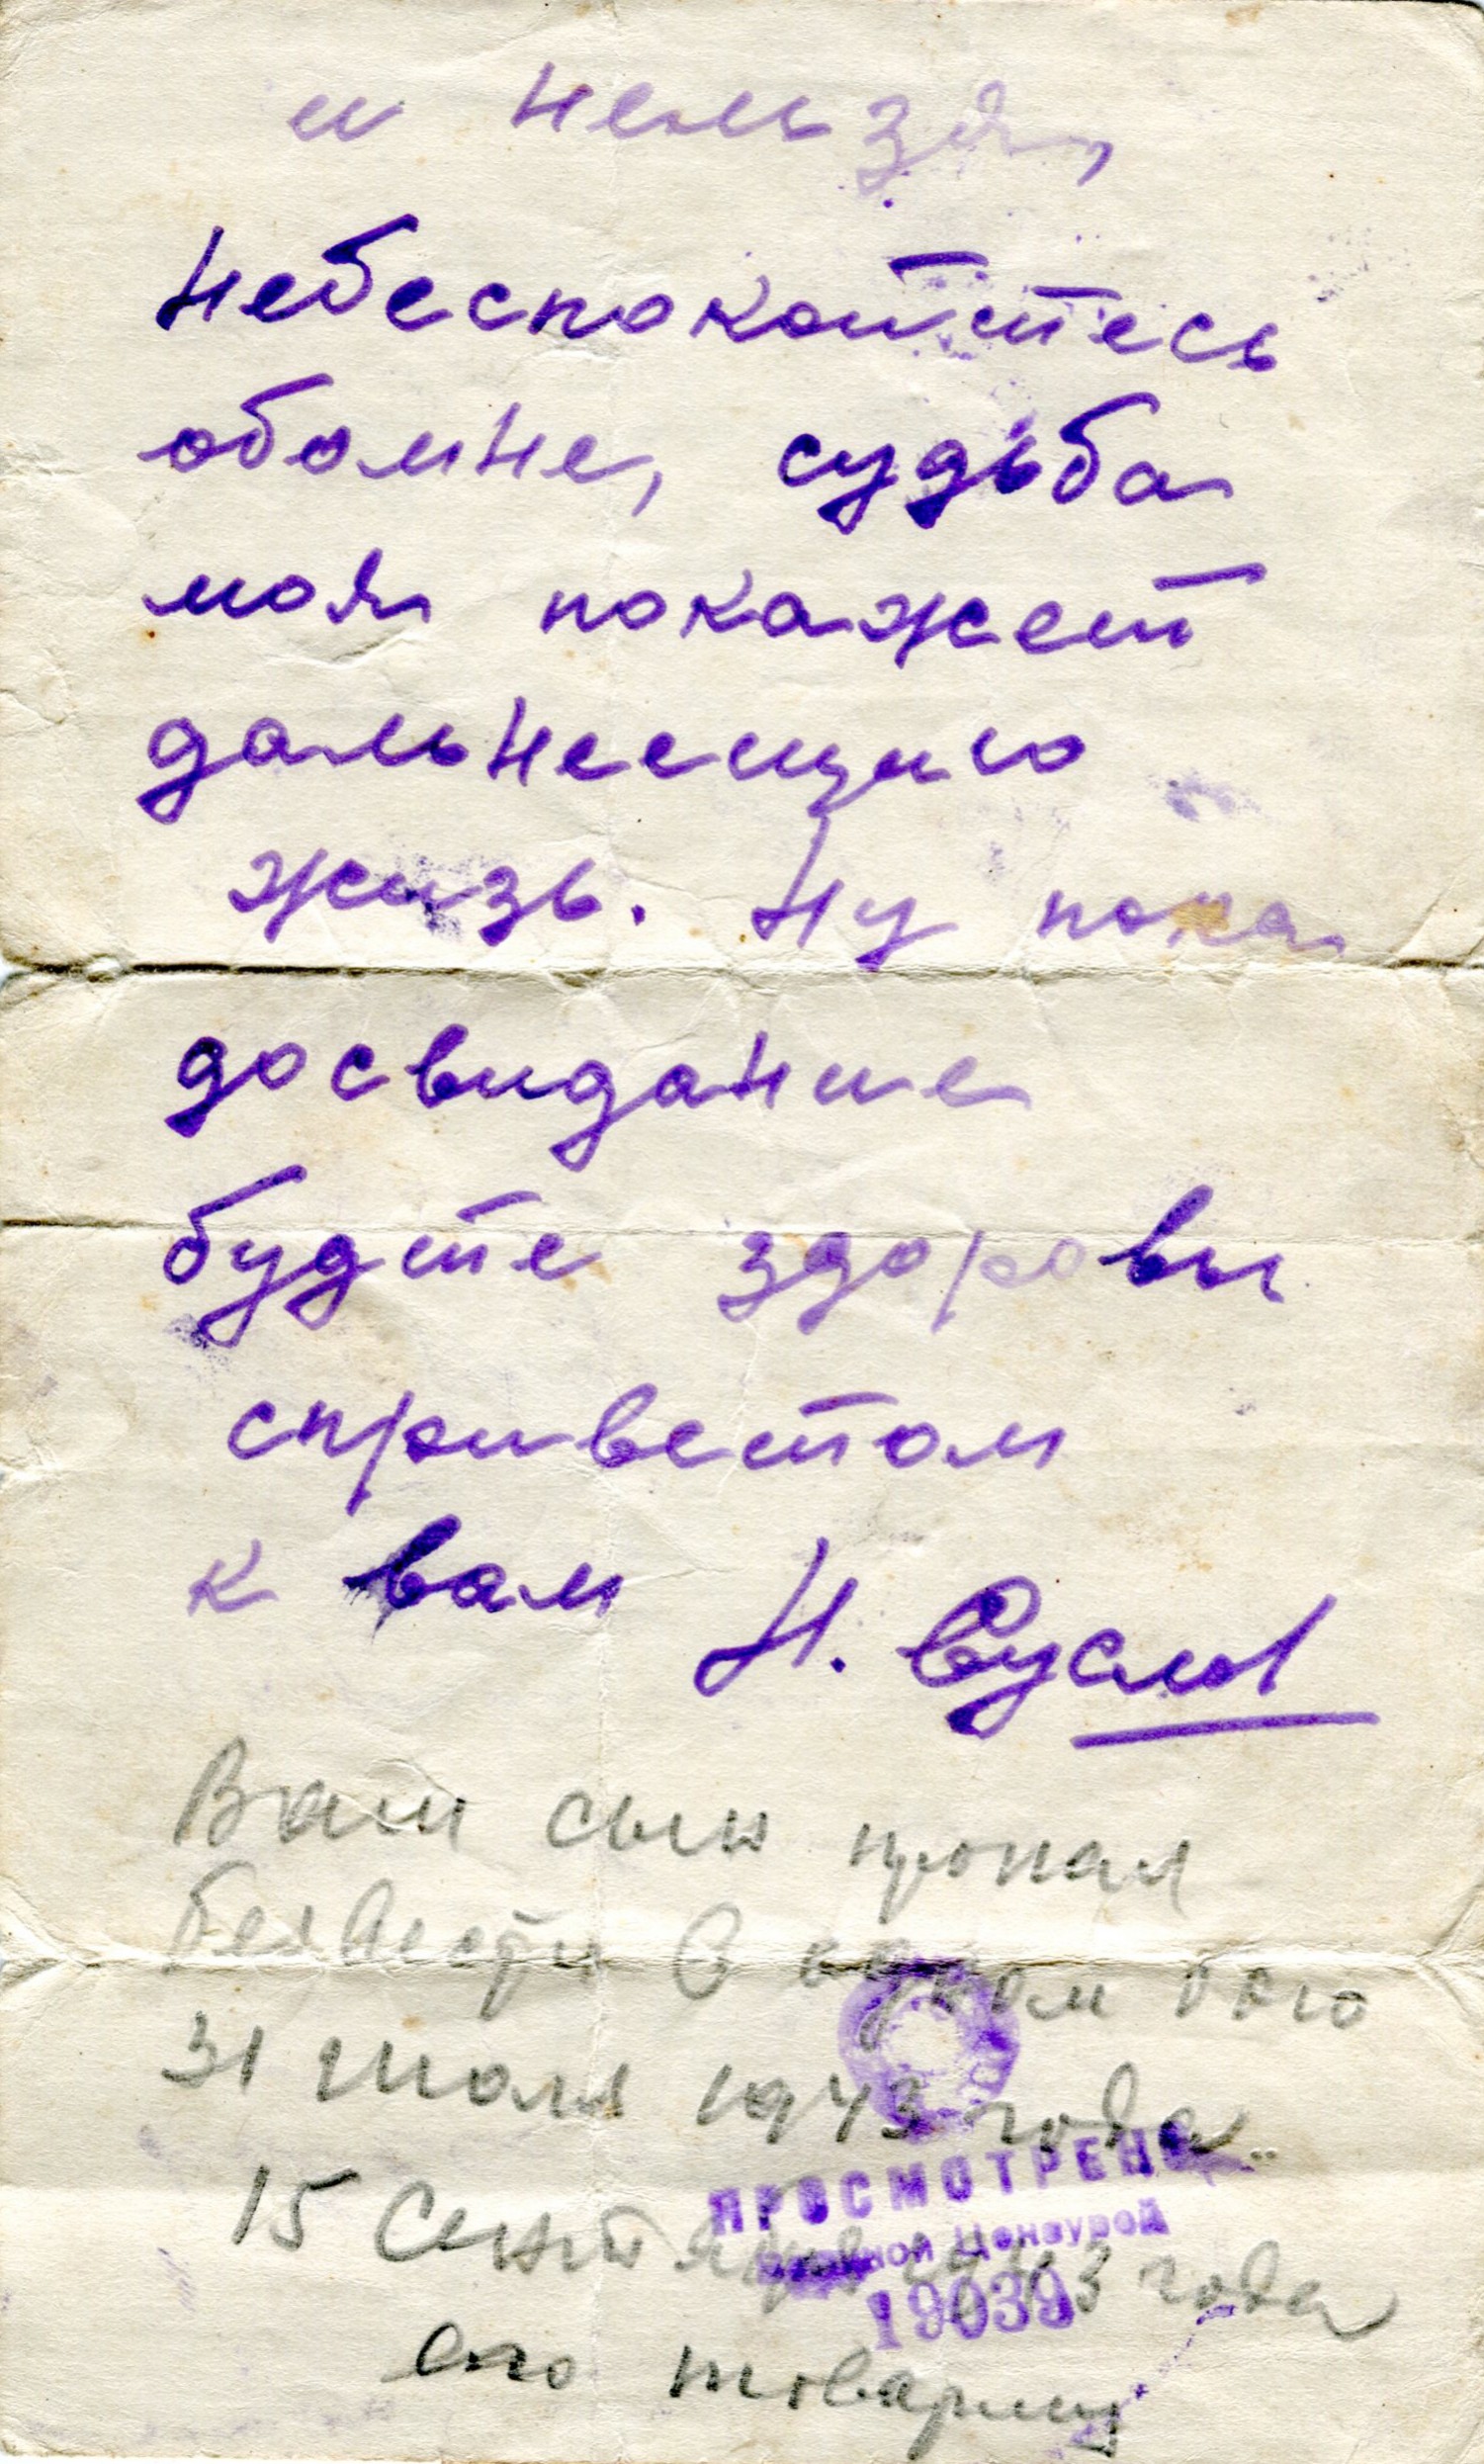 и нельзя,
небеспокойтесь
обомне, судьба
моя покажет
дальнеещию
жизь. Ну пока
досвидание
будте здоровы
сприветом
к вам Н. Суслов
Ваш сын пропал
безвести в бою
31 июля 1943 года
15 Сентября 1943 года
его товарищ
ПРОСМОТРЕНО
Военной Цензурой
19039